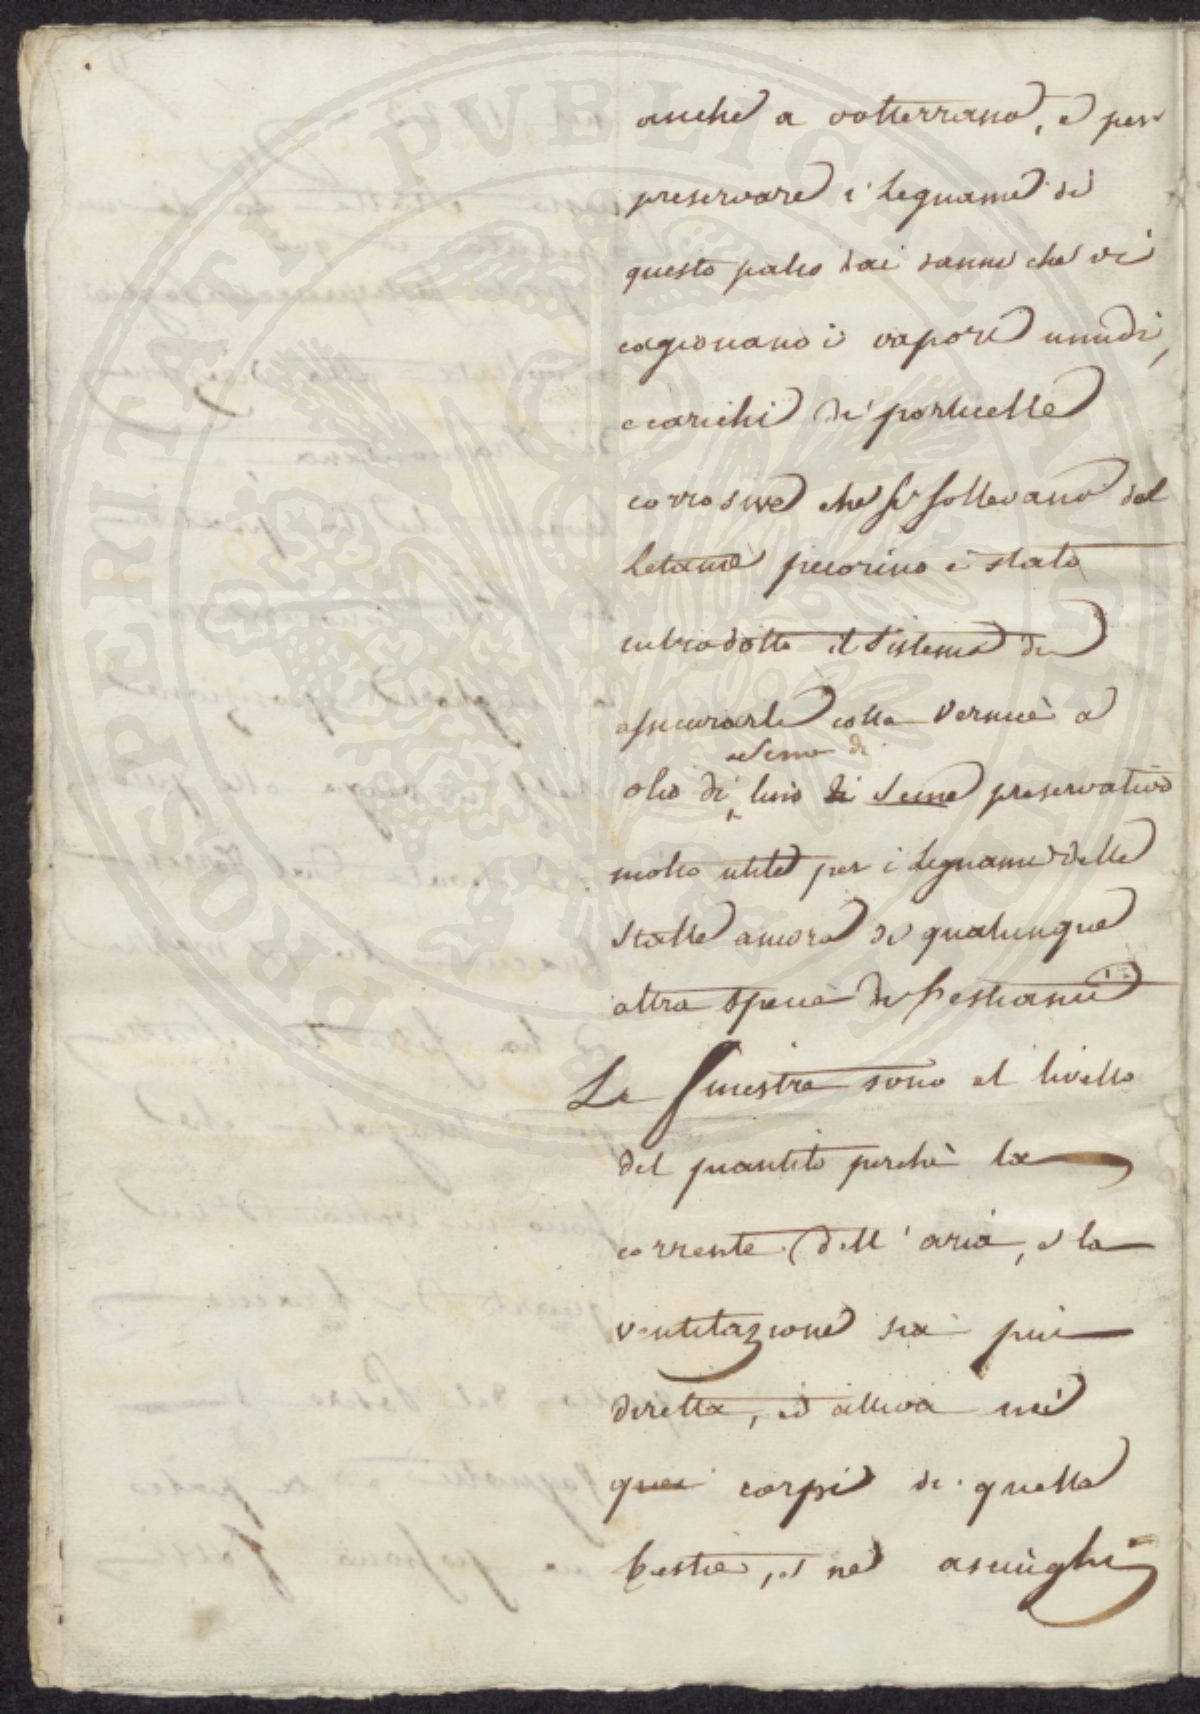 anche a volterrana, e per
preservare i legnami di
questo palco dai danni che vi
cagionano i vapori umidi,
e carichi di particelle
corrosive che si sollevano dal
letame pecorino è stato
introdotto il sistema di
assicurarli colla vernice a
seme di
olio di lino di seme preservativo
molto utile per i legnami delle
stalle ancora di qualunque
altra specie di bestiami
Le finestre sono al livello
del piantito perchè la
corrente dell' aria, e la
ventilazione sia più
diretta, ed attiva nei
quei corpi di quelle
bestie, e ne asciughi
PROSPERITATI PVBLICAE AVGENDAE